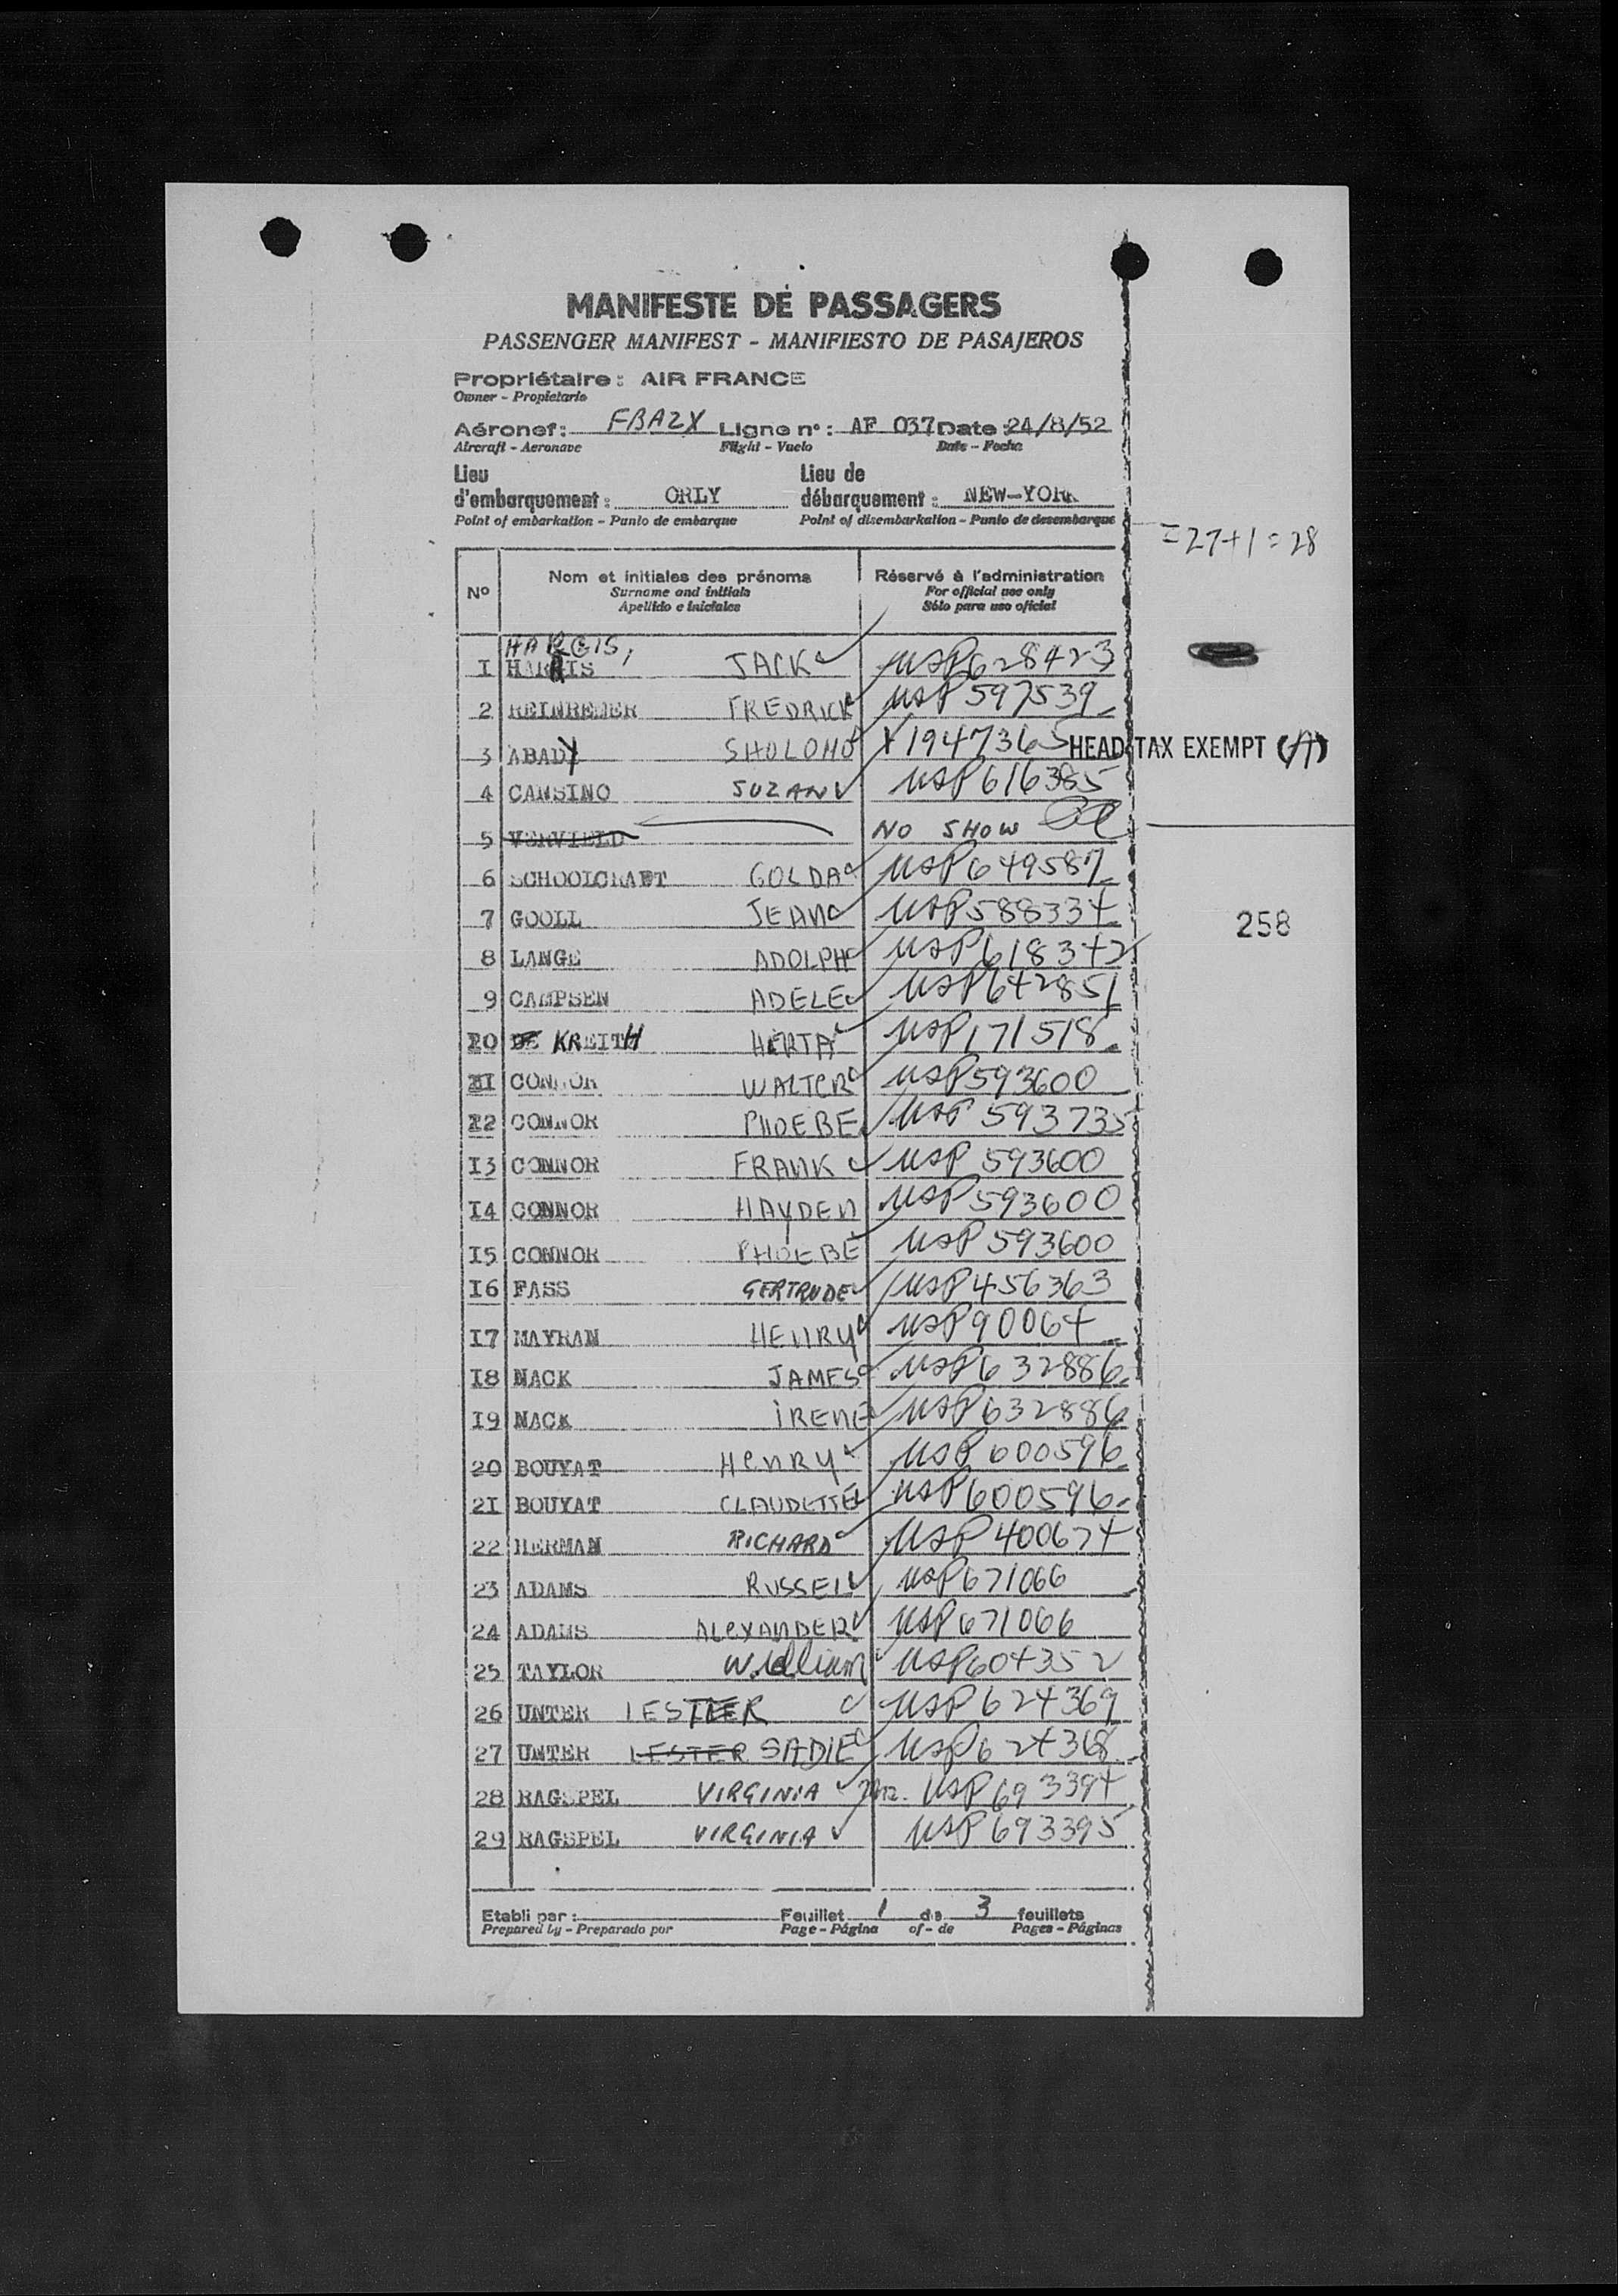 MANIFESTE DE PASSAGERS
PASSENGER MANIFEST - MANIFIESTO DE PASAJEROS
Propriétaire : AIR FRANCE
Owner - Propietario
Aéronef : FBAZX Ligne n° : AF 037 Date : 24/8/52
Aircraft - Aeronave Flight - Vuelo Date - Fecha
Lieu d'embarquement : ORLY Lieu de débarquement : NEW-YORK
Point of embarkation - Punto de embarque Point of disembarkation - Punto de desembarque
=27+1=28
N° Nom et initiales des prénoms Réservé à l'administration
Surname and initials For official use only
Apellido e iniciales Sólo para uso oficial
HARGIS,
1 HARRIS JACK USP 628423
2 REINREMER FREDRICK USP 597539
3 ABADY SHOLOMO V1947365 HEAD TAX EXEMPT (A)
4 CANSINO SUZAN USP 616385
5 VERVIELD NO SHOW
6 SCHOOLCRAFT GOLDA USP 649587
7 GOOLL JEAN USP 588334
258
8 LANGE ADOLPH USP 618342
9 CAMPSEN ADELE USP 642851
10 DE KREITH HERTA USP 171518
11 CONNOR WALTER USP 593600
12 CONNOR PHOEBE USP 593735
13 CONNOR FRANK USP 593600
14 CONNOR HAYDEN USP 593600
15 CONNOR PHOEBE USP 593600
16 FASS GERTRUDE USP 456363
17 MAYRAN HENRY USP 90064
18 NACK JAMES USP 632886
19 NACK IRENE USP 632886
20 BOUYAT HENRY USP 600596
21 BOUYAT CLAUDETTE USP 600596
22 HERMAN RICHARD USP 400674
23 ADAMS RUSSELL USP 671066
24 ADAMS ALEXANDER USP 671066
25 TAYLOR William USP 604352
26 UNTER LESTER USP 624369
27 UNTER LESTER SADIE USP 624368
28 RAGSPEL VIRGINIA Mrs. USP 693394
29 RAGSPEL VIRGINIA USP 693395
Etabli par : Feuillet 1 de 3 feuillets
Prepared by - Preparado por Page - Página of - de Pages - Páginas